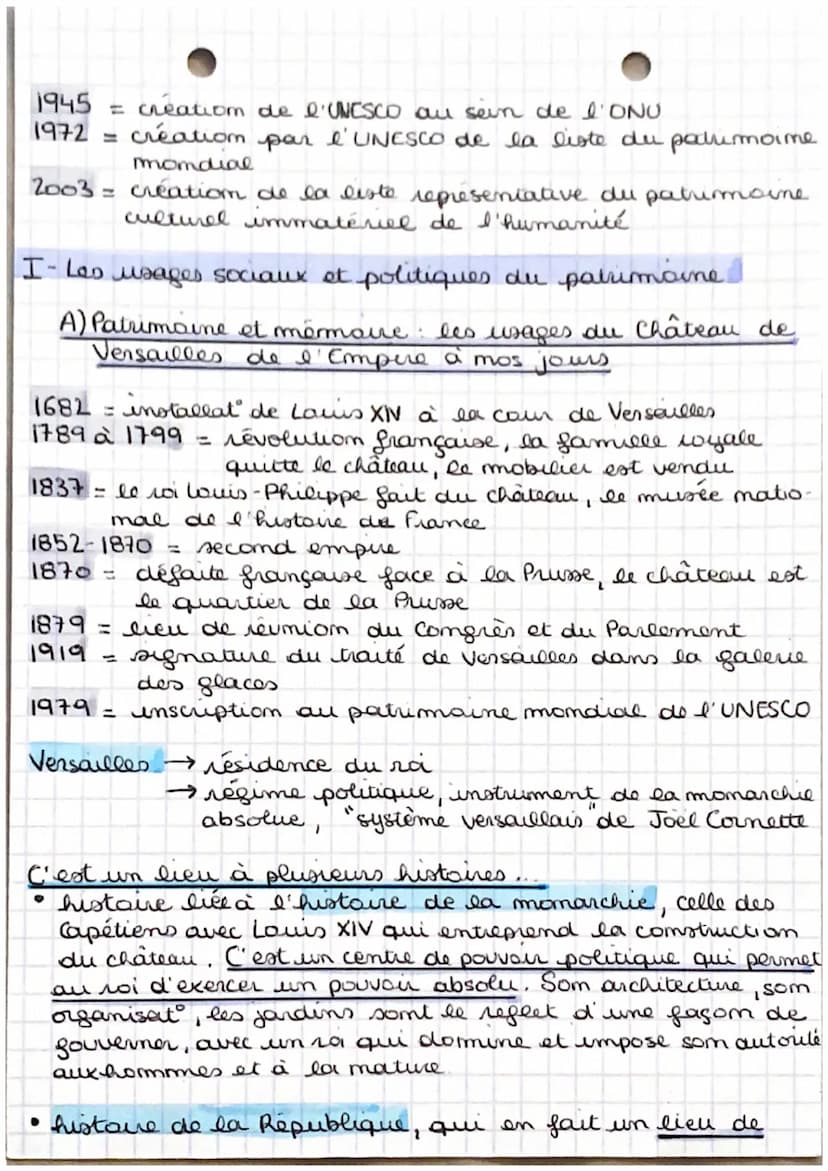 1945 = création de l'UNESCO au sein de l'ONU
1972 = création par l'UNESCO de la liste du patrimoine
mondial
2003 = création de la liste représentative du patrimoine
culturel immatériel de l'humanité
I - Les usages sociaux et politiques du patrimoine
A) Patrimoine et mémoire : les usages du Château de
Versailles de l'Empire à nos jours
1682 = installat° de Louis XIV à la cour de Versailles
1789 à 1799 = révolution française, la famille royale
quitte le château, le mobilier est vendu
1837 = le roi Louis-Philippe fait du château, le musée natio-
nal de l'histoire de France
1852-1870 = second empire
1870 = défaite française face à la Prusse, le château est
le quartier de la Prusse
1879 = lieu de réunion du Congrès et du Parlement
1919 = signature du traité de Versailles dans la galerie
des glaces
1979 = inscription au patrimoine mondial de l'UNESCO
Versailles → résidence du roi
→ régime politique, instrument de la monarchie
absolue, "système versaillais" de Joël Cornette
C'est un lieu à plusieurs histoires...
• histoire liée à l'histoire de la monarchie, celle des
Capétiens avec Louis XIV qui entreprend la construction
du château. C'est un centre de pouvoir politique qui permet
au roi d'exercer un pouvoir absolu. Son architecture, son
organisat°, les jardins sont le reflet d'une façon de
gouverner, avec un roi qui domine et impose son autorité
aux hommes et à la nature
• histoire de la République, qui en fait un lieu de